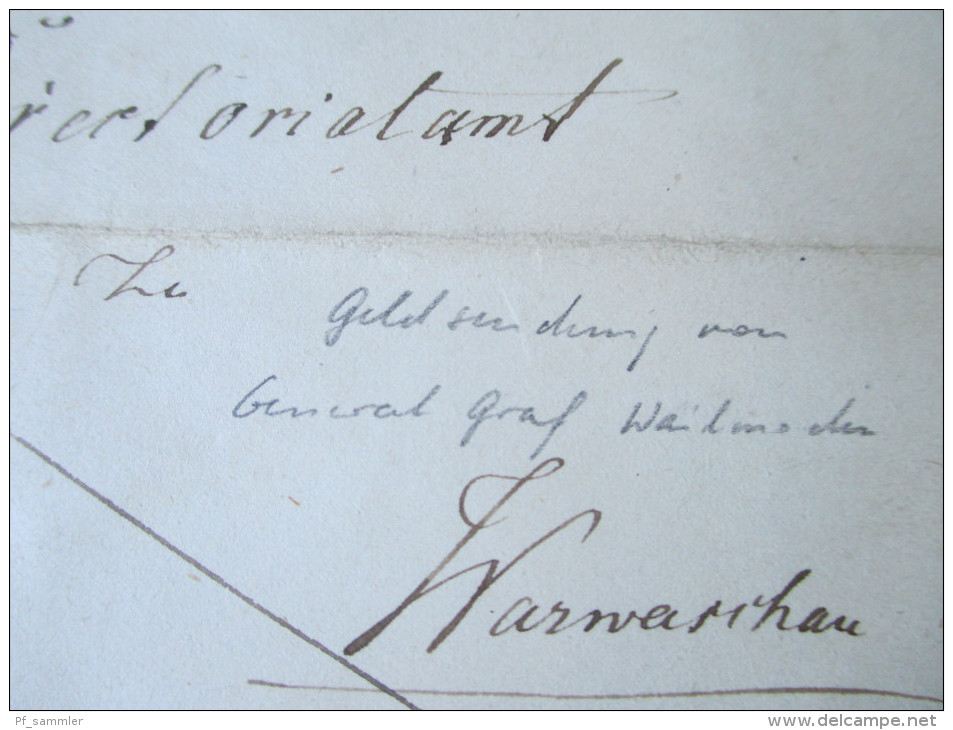 rectoriatamt
Zu
Geldsendung von
General Graf Wallmoden
Warwaschau
Pf_sammler
www.delcampe.net